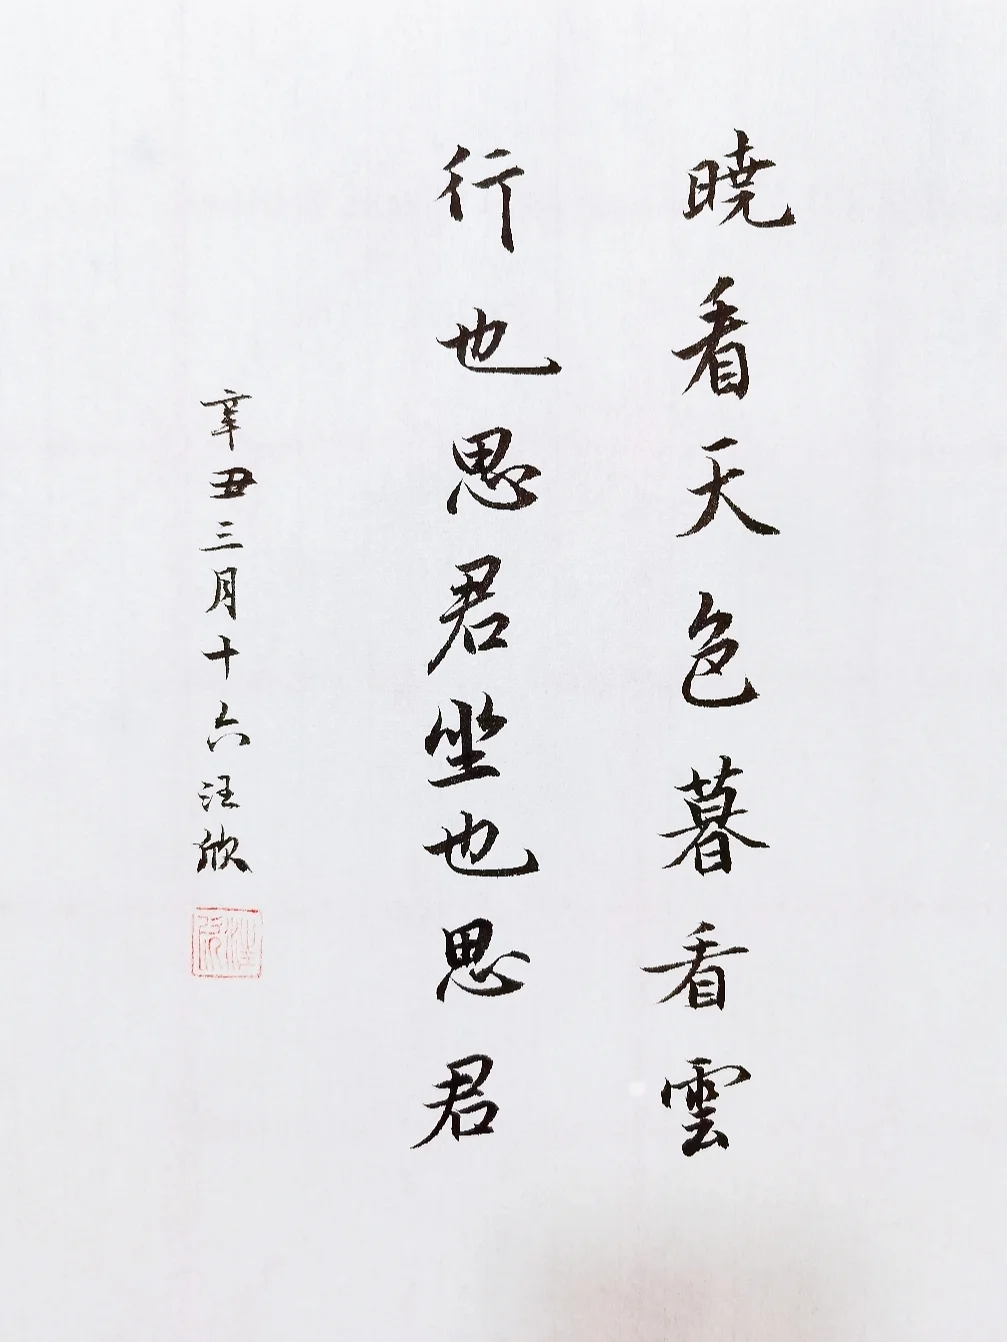 曉看天色暮看雲
行也思君坐也思君
辛丑三月十六汪欣